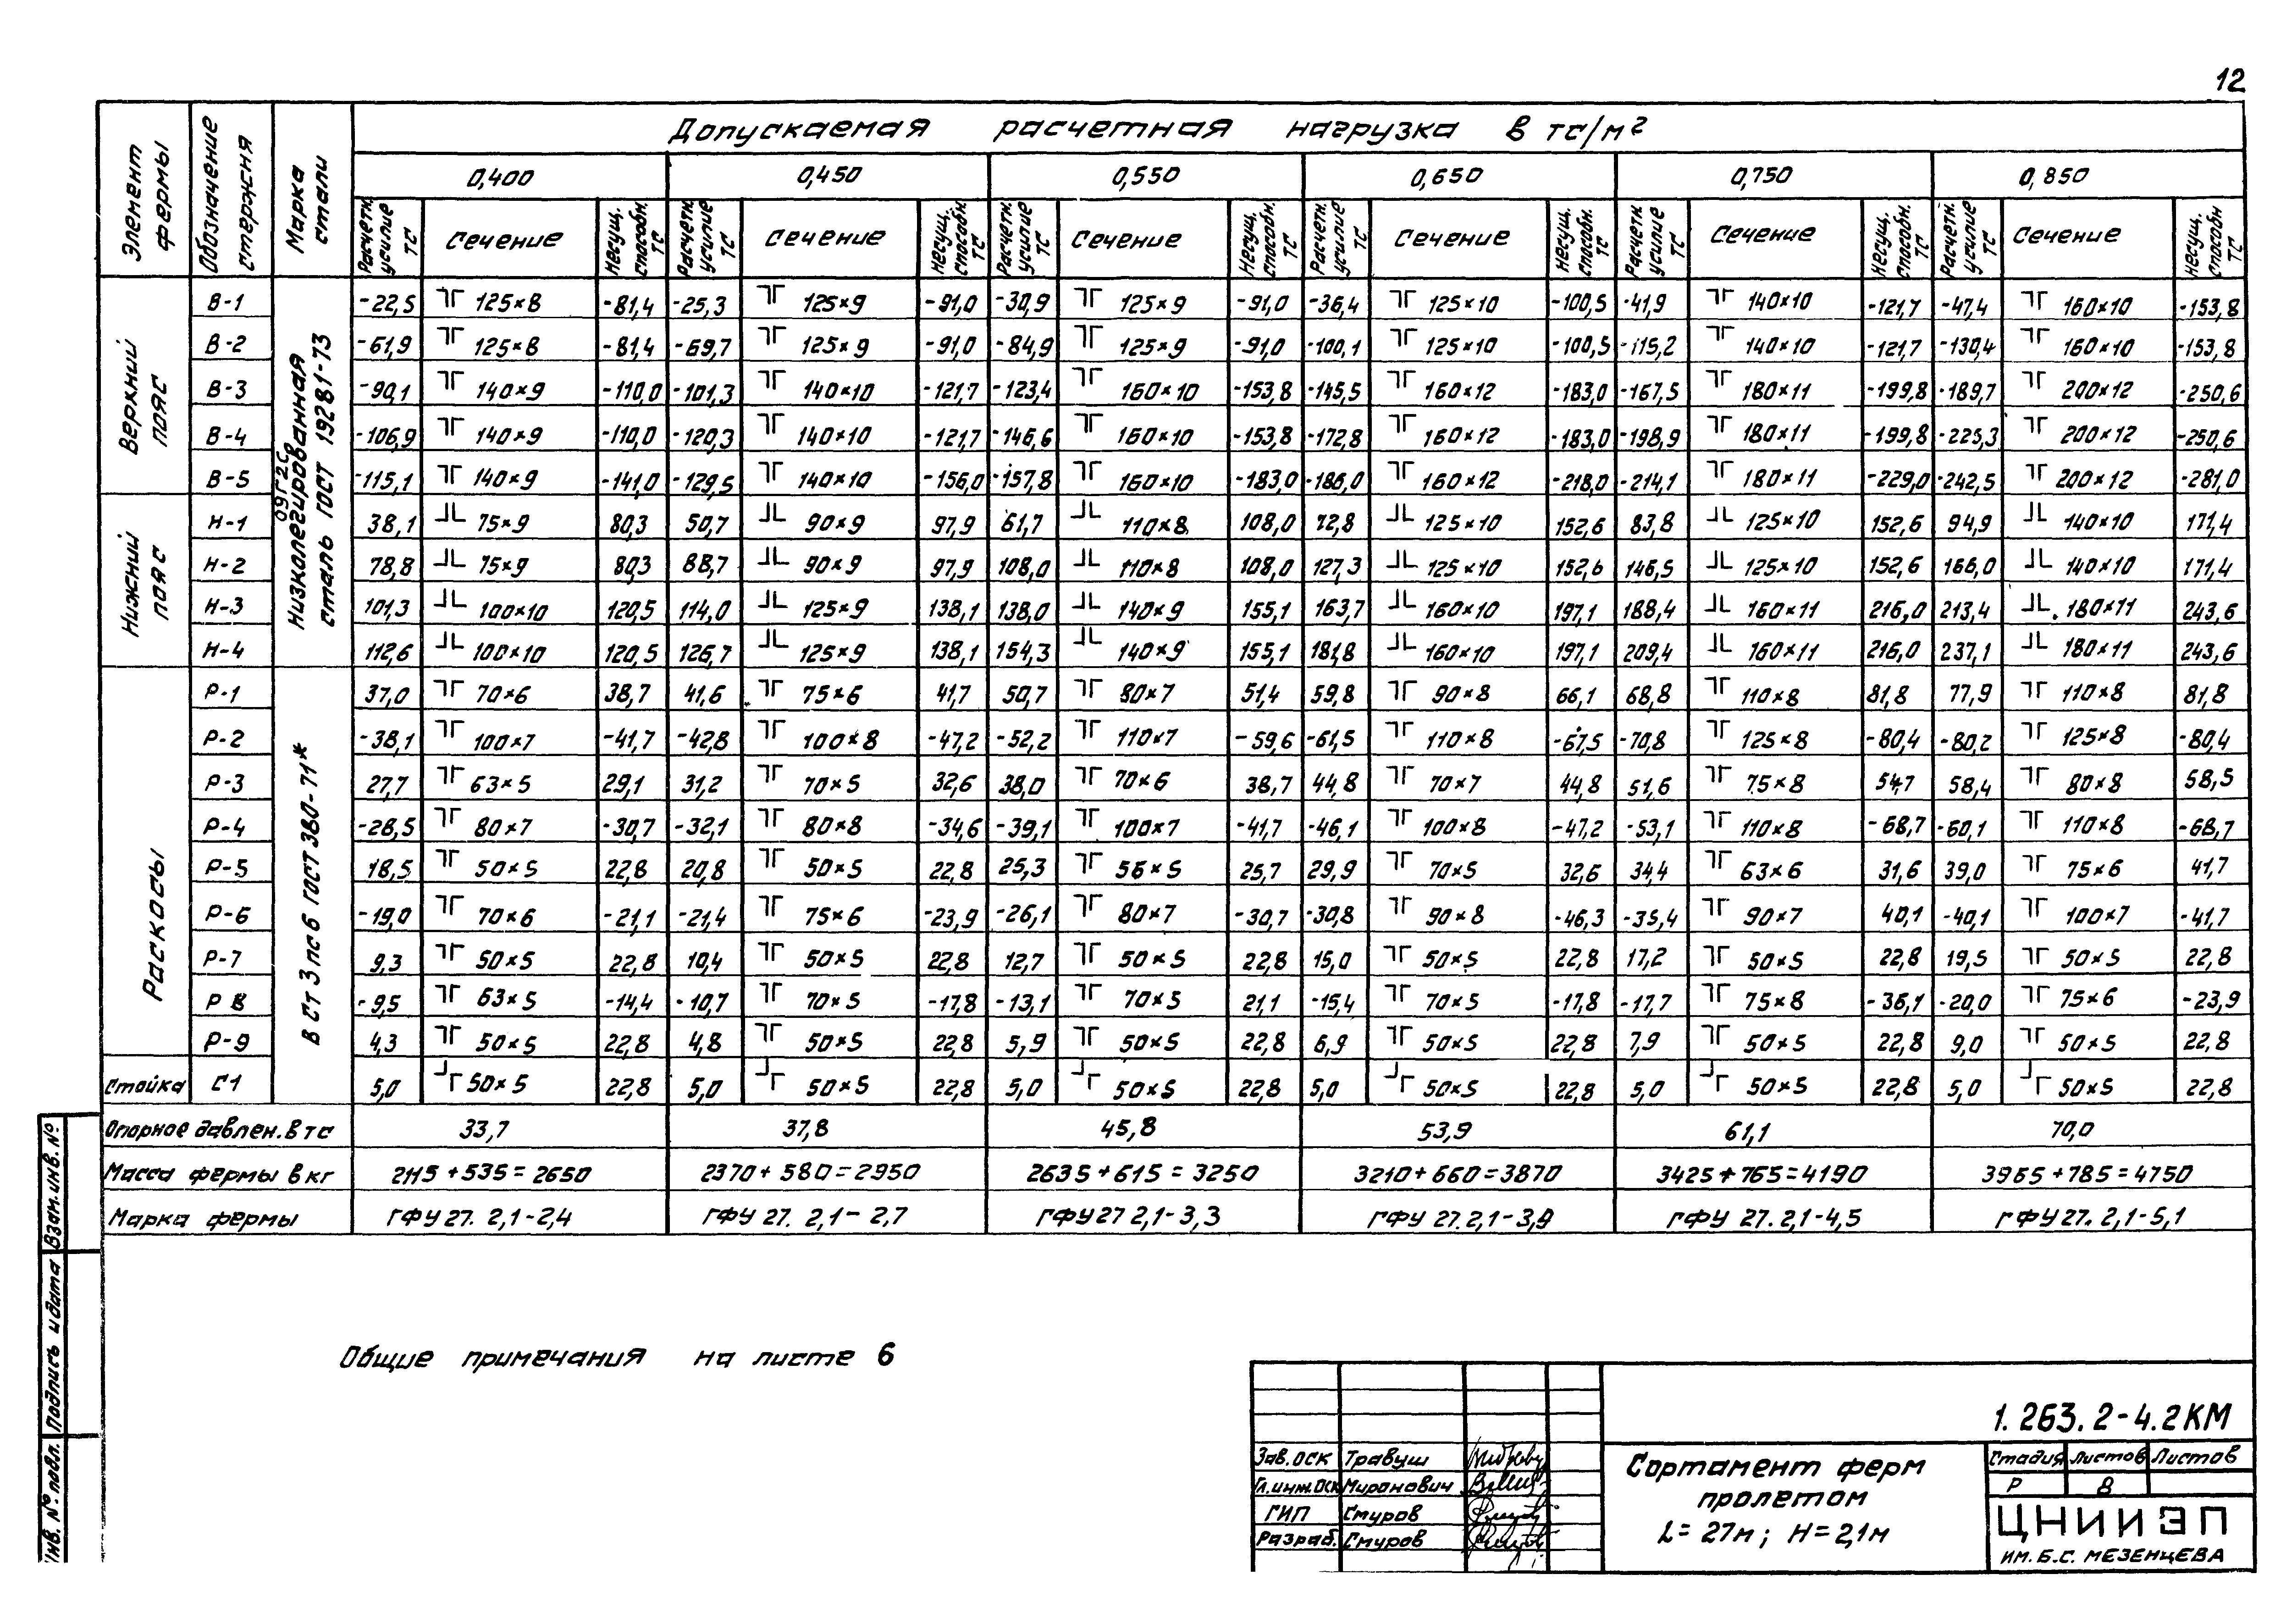 12
Элемент фермы
Обозначение стержня
Марка стали
Допускаемая расчетная нагрузка в тс/м²
0,400 0,450 0,550 0,650 0,750 0,850
Расчетн. усилие ТС Сечение Несущ. способн. ТС Расчетн. усилие ТС Сечение Несущ. способн. ТС Расчетн. усилие ТС Сечение Несущ. способн. ТС Расчетн. усилие ТС Сечение Несущ. способн. ТС Расчетн. усилие ТС Сечение Несущ. способн. ТС Расчетн. усилие ТС Сечение Несущ. способн ТС
Верхний пояс
Низколегированная сталь ГОСТ 19281-73
09Г2С
В-1 -22,5 125×8 -81,4 -25,3 125×9 -91,0 -30,9 125×9 -91,0 -36,4 125×10 -100,5 -41,9 140×10 -121,7 -47,4 160×10 -153,8
В-2 -61,9 125×8 -81,4 -69,7 125×9 -91,0 -84,9 125×9 -91,0 -100,1 125×10 -100,5 -115,2 140×10 -121,7 -130,4 160×10 -153,8
В-3 -90,1 140×9 -110,0 -101,3 140×10 -121,7 -123,4 160×10 -153,8 -145,5 160×12 -183,0 -167,5 180×11 -199,8 -189,7 200×12 -250,6
В-4 -106,9 140×9 -110,0 -120,3 140×10 -121,7 -146,6 160×10 -153,8 -172,8 160×12 -183,0 -198,9 180×11 -199,8 -225,3 200×12 -250,6
В-5 -115,1 140×9 -141,0 -129,5 140×10 -156,0 -157,8 160×10 -183,0 -186,0 160×12 -218,0 -214,1 180×11 -229,0 -242,5 200×12 -281,0
Нижний пояс
Н-1 38,1 75×9 80,3 50,7 90×9 97,9 61,7 110×8 108,0 72,8 125×10 152,6 83,8 125×10 152,6 94,9 140×10 171,4
Н-2 78,8 75×9 80,3 88,7 90×9 97,9 108,0 110×8 108,0 127,3 125×10 152,6 146,5 125×10 152,6 166,0 140×10 171,4
Н-3 101,3 100×10 120,5 114,0 125×9 138,1 138,0 140×9 155,1 163,7 160×10 197,1 188,4 160×11 216,0 213,4 180×11 243,6
Н-4 112,6 100×10 120,5 126,7 125×9 138,1 154,3 140×9 155,1 181,8 160×10 197,1 209,4 160×11 216,0 237,1 180×11 243,6
Раскосы
В Ст 3 пс 6 ГОСТ 380-71*
Р-1 37,0 70×6 38,7 41,6 75×6 41,7 50,7 80×7 51,4 59,8 90×8 66,1 68,8 110×8 81,8 77,9 110×8 81,8
Р-2 -38,1 100×7 -41,7 -42,8 100×8 -47,2 -52,2 110×7 -59,6 -61,5 110×8 -67,5 -70,8 125×8 -80,4 -80,2 125×8 -80,4
Р-3 27,7 63×5 29,1 31,2 70×5 32,6 38,0 70×6 38,7 44,8 70×7 44,8 51,6 75×8 54,7 58,4 80×8 58,5
Р-4 -28,5 80×7 -30,7 -32,1 80×8 -34,6 -39,1 100×7 -41,7 -46,1 100×8 -47,2 -53,1 110×8 -68,7 -60,1 110×8 -68,7
Р-5 18,5 50×5 22,8 20,8 50×5 22,8 25,3 56×5 25,7 29,9 70×5 32,6 34,4 63×6 31,6 39,0 75×6 41,7
Р-6 -19,0 70×6 -21,1 -21,4 75×6 -23,9 -26,1 80×7 -30,7 -30,8 90×8 -46,3 -35,4 90×7 40,1 -40,1 100×7 -41,7
Р-7 9,3 50×5 22,8 10,4 50×5 22,8 12,7 50×5 22,8 15,0 50×5 22,8 17,2 50×5 22,8 19,5 50×5 22,8
Р 8 -9,5 63×5 -14,4 -10,7 70×5 -17,8 -13,1 70×5 21,1 -15,4 70×5 -17,8 -17,7 75×8 -36,1 -20,0 75×6 -23,9
Р-9 4,3 50×5 22,8 4,8 50×5 22,8 5,9 50×5 22,8 6,9 50×5 22,8 7,9 50×5 22,8 9,0 50×5 22,8
Стойка С1 5,0 50×5 22,8 5,0 50×5 22,8 5,0 50×5 22,8 5,0 50×5 22,8 5,0 50×5 22,8 5,0 50×5 22,8
Опорное давлен. в тс 33,7 37,8 45,8 53,9 61,1 70,0
Масса фермы в кг 2115+535=2650 2370+580=2950 2635+615=3250 3210+660=3870 3425+765=4190 3965+785=4750
Марка фермы ГФУ 27. 2,1-2,4 ГФУ 27. 2,1-2,7 ГФУ 27 2,1-3,3 ГФУ 27. 2,1-3,9 ГФУ 27. 2,1-4,5 ГФУ 27. 2,1-5,1
Взам. инв. №
Подпись и дата
Инв. № подл.
Общие примечания на листе 6
1.263.2-4.2КМ
Зав. ОСК Травуш
Гл. инж. ОСК Миранович
ГИП Смуров
Разраб. Смуров
Сортамент ферм
пролетом
L=27м; H=2,1м
Стадия Листов Листов
Р 8
ЦНИИЭП
ИМ. Б.С. МЕЗЕНЦЕВА